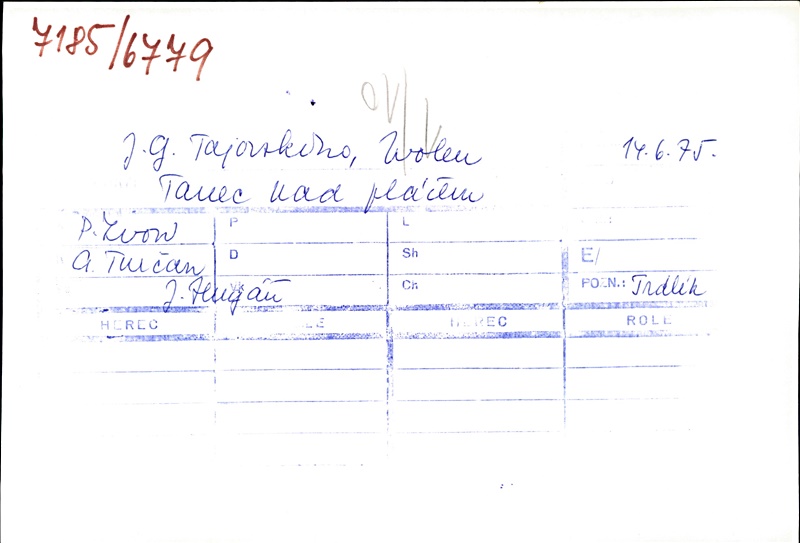 7185/6779
J. G. Tajovského, Zvolen 14.6.75.
Tanec nad pláčem
P. Zvon P L
A. Turčan D Sh E/
J. Hugáň Ch POZN.: Trdlík
HEREC HEREC ROLE